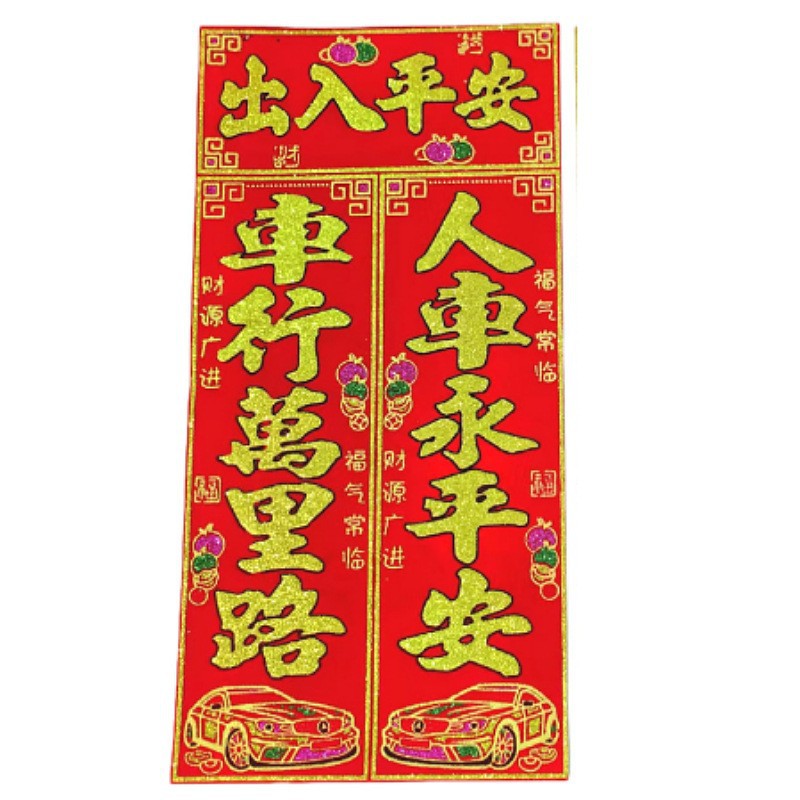 出入平安
财
車行萬里路
财源广进
福气常临
人車永平安
福气常临
财源广进